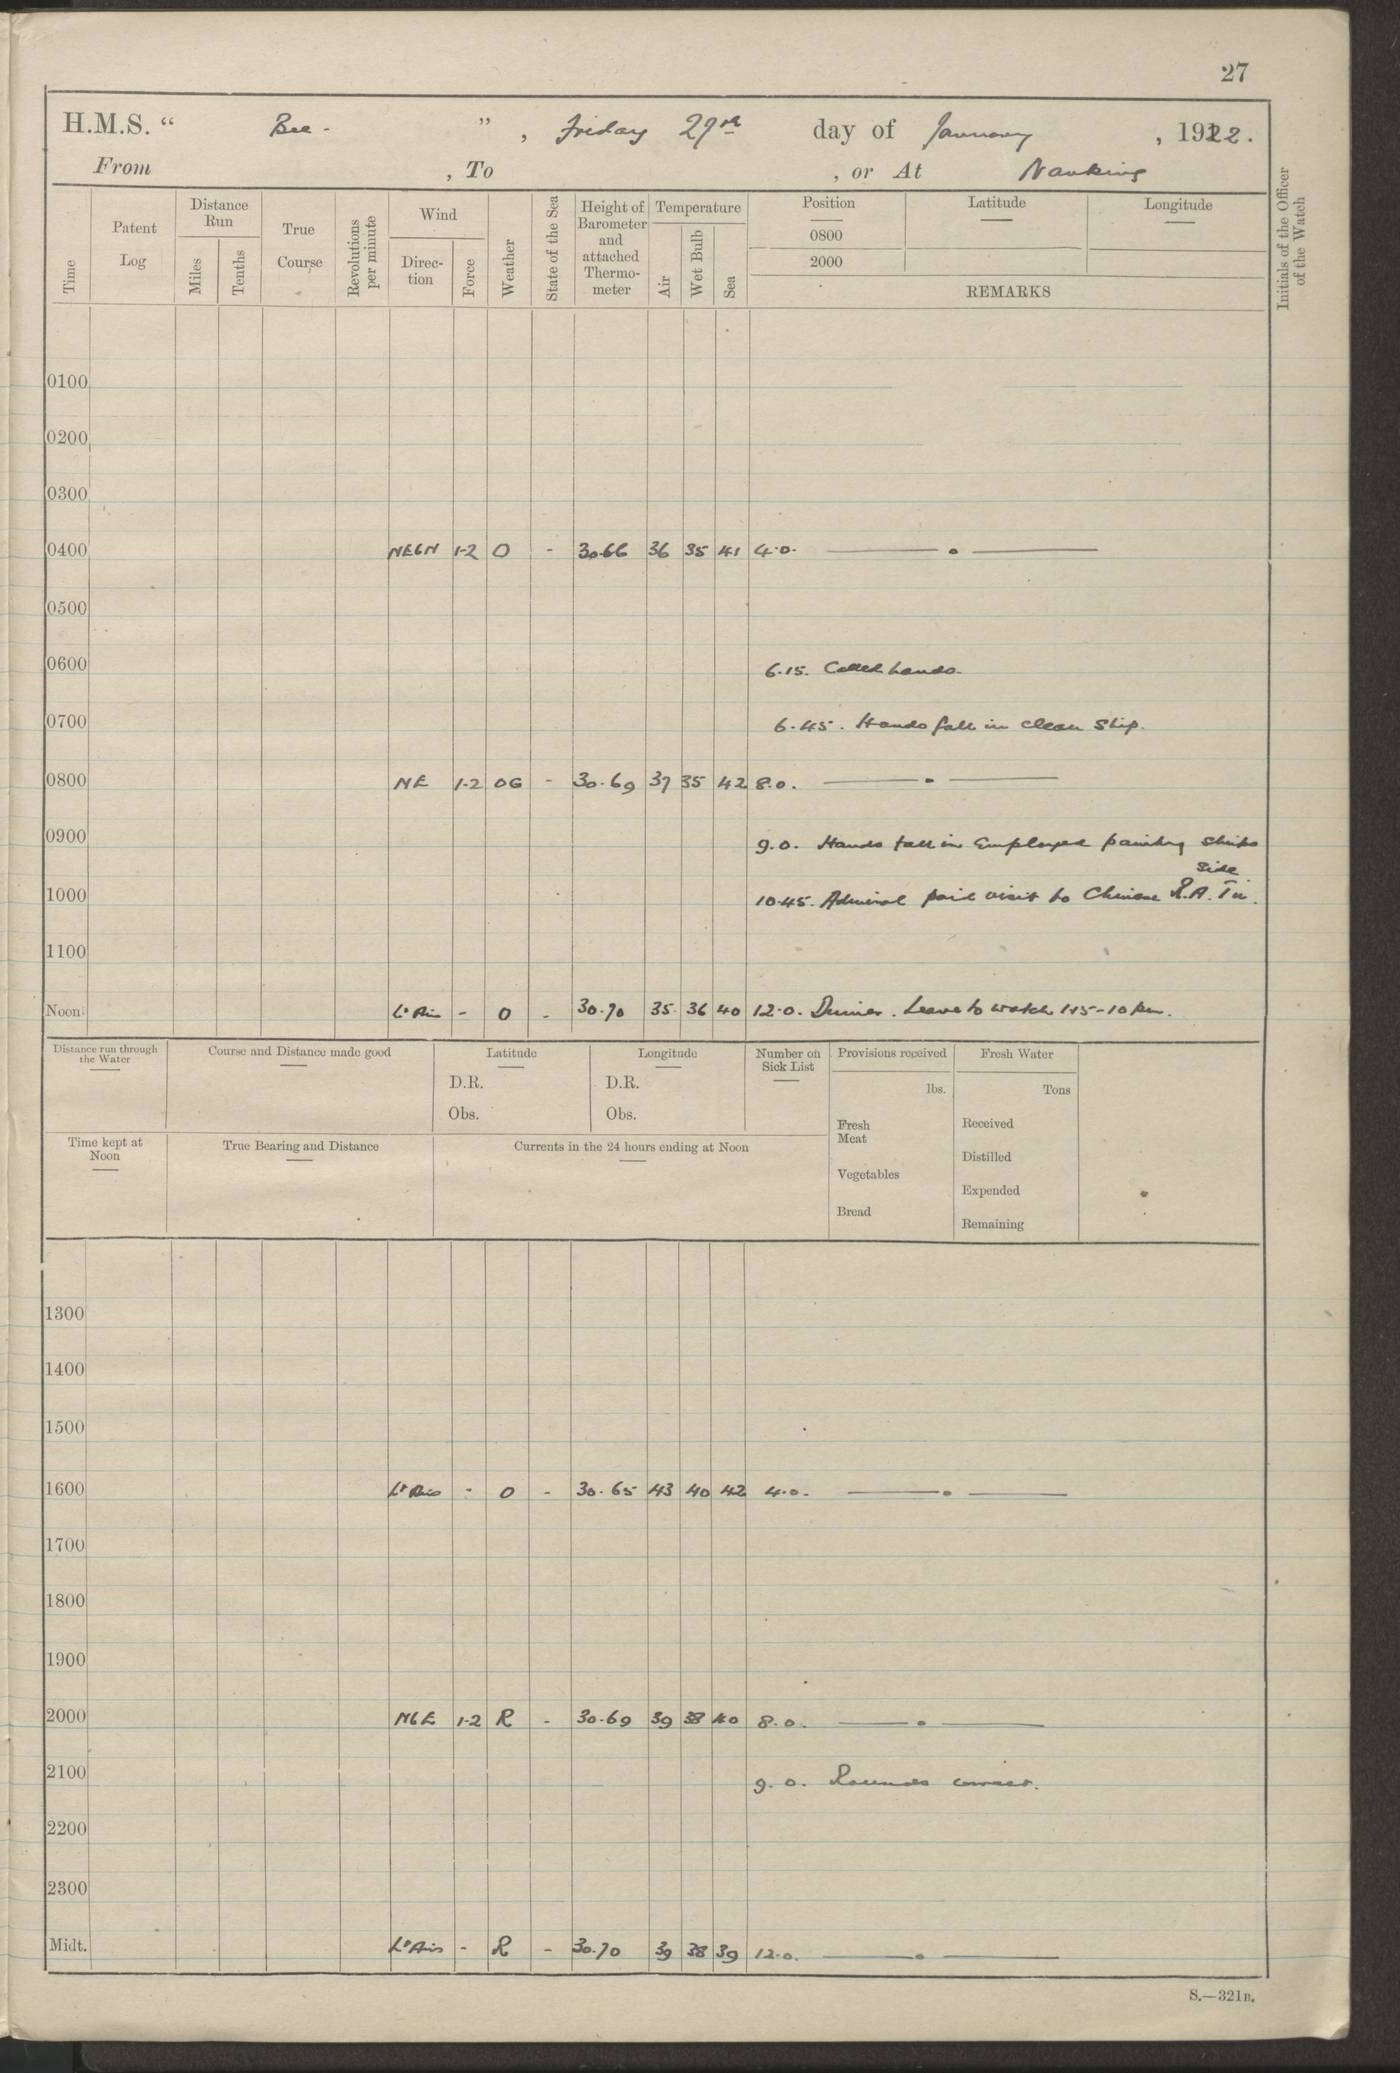 27
H.M.S. “ Bee - ” , Friday 27th day of January , 1922.
From , To , or At Nanking
Time
Patent Log
Distance Run
Miles
Tenths
True Course
Revolutions per minute
Wind
Direc-tion
Force
Weather
State of the Sea
Height of Barometer and attached Thermo-meter
Temperature
Air
Wet Bulb
Sea
Position
0800
2000
Latitude
Longitude
REMARKS
Initials of the Officer of the Watch
0100
0200
0300
0400 NEbN 1-2 O - 30.66 36 35 41 4.0.
0500
0600 6.15. Called hands.
0700 6.45. Hands fall in clean ship.
0800 NE 1-2 OG - 30.69 37 35 42 8.0.
0900 9.0. Hands fall in Employed painting ships
side.
1000 10.45. Admiral paid visit to Chinese R.A. Tu.
1100
Noon Lt Air - O - 30.70 35 36 40 12.0. Dinner. Leave to watch 1.15-10 pm.
Distance run through the Water
Course and Distance made good
Latitude
D.R.
Obs.
Longitude
D.R.
Obs.
Number on Sick List
Provisions received
lbs.
Fresh Meat
Vegetables
Bread
Fresh Water
Tons
Received
Distilled
Expended
Remaining
Time kept at Noon
True Bearing and Distance
Currents in the 24 hours ending at Noon
1300
1400
1500
1600 Lt Air - O - 30.65 43 40 42 4.0.
1700
1800
1900
2000 NbE 1-2 R - 30.69 39 38 40 8.0.
2100 9.0. Rounds correct.
2200
2300
Midt. Lt Air - R - 30.70 39 38 39 12.0.
S.—321B.